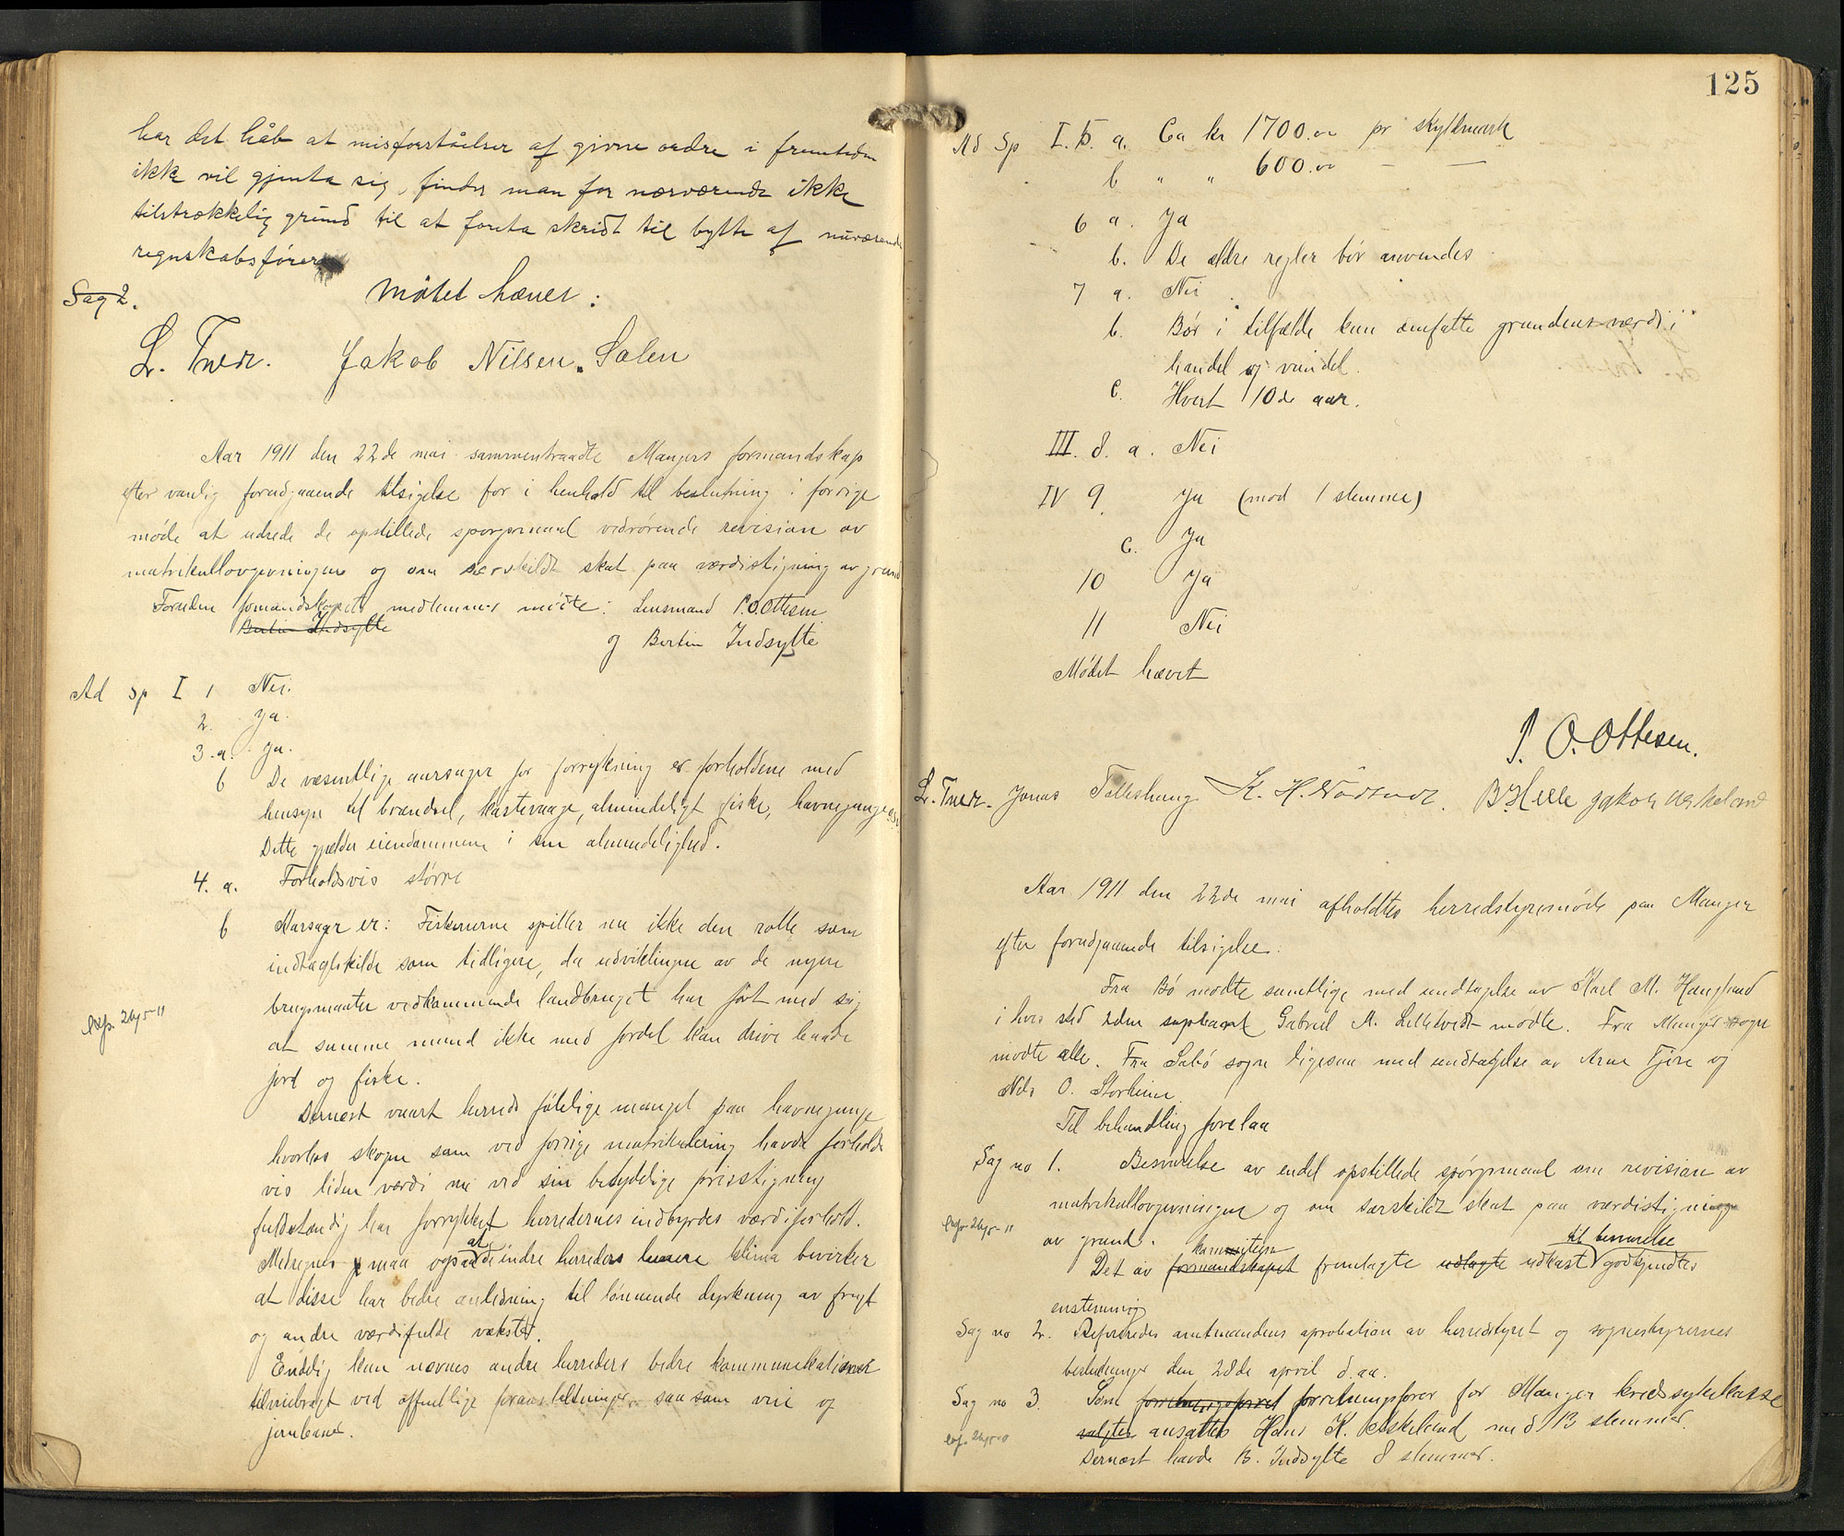 har det håb at misforståelser af givne ordre i fremtiden
ikke vil gjenta sig, finder man for nærværende ikke
tilstrækkelig grund til at foreta skridt til bytte af nuværende
regnskabsfører
Sag 2.
Mødet hævet:
L. Tveit. Jakob Nilsen Solen
Aar 1911 den 22de mai sammentraadte Mangers formandskap
efter vanlig forudgaaende tilsigelse for i henhold til beslutning i forrige
møde at udrede de opstillede spørgsmaal vedrørende revision av
matrikullovgivningen og om særskildt skat paa værdistigning av grund
Foruden formandskapets medlemmer mødte: Lensmand P. O. Ottesen
Bertin Indsylte
og Bertin Indsylte
Ad Sp I 1 Nei.
2. Ja.
3. a. Ja.
b De væsentlige aarsager for forrykning er forholdene med
hensyn til brændsel, kastevaage, almindeligt fiske, havnegange
Dette gjælder eiendommene i sin almindelighed.
4. a. Forholdsvis større
b Aarsager er: Fiskerierne spiller nu ikke den rolle som
indtægtskilde som tidligere, da udviklingen av de nyere
brugsmaater vedkommende landbruget har ført med sig
at samme mand ikke med fordel kan drive baade
jord og fiske.
Dernæst vaart herreds følelige mangel paa havnegange
hvorhos skogen som ved forrige matrikulering havde forholds
vis liden værdi nu ved sin betydelige prisstigning
fuldstændig har forrykket herredernes indbyrdes værdiforhold.
Medregnes maa ogsaa at de indre herreders klima bevirker
at disse har bedre anledning til lønnende dyrkning av frugt
og andre værdifulde vækster.
Endelig kan nævnes andre herreders bedre kommunikationer
tilveiebragt ved offentlige foranstaltninger saasom vei og
jernbaner.
125
Ad Sp I. 5. a. Ca kr 1700.00 pr skyldmark
b " " 600.00 — —
6 a. Ja
b. De ældre regler bør anvendes
7 a. Nei
b. Bør i tilfælde kun omfatte grundens værdi i
handel og vandel.
c. Hvert 10de aar.
III. 8. a. Nei
IV 9. Ja (mod 1 stemme)
c. Ja
10 Ja
11 Nei
Mødet hævet
P. O. Ottesen.
L. Tveit. Jonas Toftesaug K. H. B. Helle Jakob Askeland
Aar 1911 den 22de mai afholdtes herredstyremøde paa Manger
efter forudgaaende tilsigelse.
Fra Bø mødte samtlige med undtagelse av Karl M. Haugland
i hvis sted 2den supleant Gabriel A. Lilletvedt mødte. Fra Manger sogn
mødte alle. Fra Sæbø sogn ligesaa med undtagelse av Arne Fjere og
Nils O. Storheim.
Til behandling forelaa
Sag no 1. Besvarelse av endel opstillede spørgsmaal om revision av
matrikullovgivningen og om særskildt skat paa værdistigning
av grund.
komiteen til besvarelse
Det av formandskapet fremlagte udlagte udkast godkjendtes
enstemmig
Sag no 2. Refereredes amtmandens aprobation av herredstyret og sognestyrernes
beslutninger den 28de april d.aa.
Sag no 3. Som forretningsfører for Manger kredssykekasse
valgtes ansattes Hans K. Askeland med 13 stemmer
Dernæst havde B. Indsylte 8 stemmer.